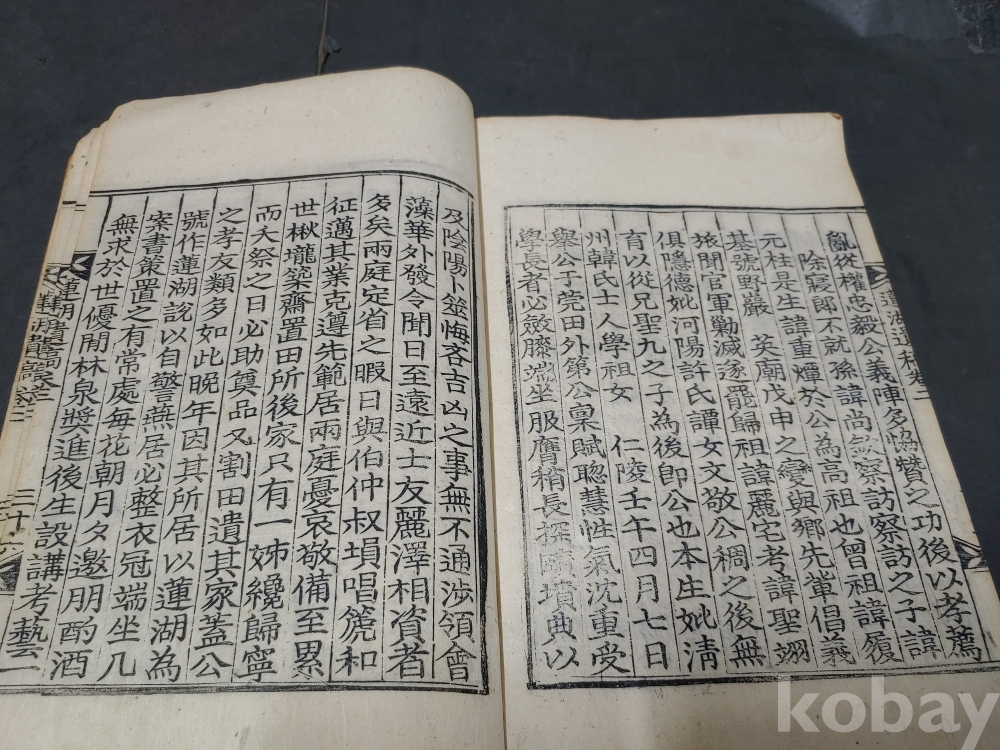 亂從權忠毅公義陣多協贊之功後以孝薦
除寢郎不就孫諱尚 察訪察訪之子諱
元柱是生諱重燁於公為高祖也曾祖諱履
基號野巖 英廟戊申之變與鄕先輩倡義
旅聞官軍勦滅遂罷歸祖諱麗宅考諱聖翊
俱隱德妣河陽許氏譚女文敬公稠之後無
育以從兄聖九之子為後卽公也本生妣淸
州韓氏士人學祖女 仁陵壬午四月七日
舉公于莞田外第公稟賦聰慧性氣沈重受
學長者必斂膝端坐服膺稍長探賾墳典以
及陰陽卜筮悔吝吉凶之事無不通涉領會
藻華外發令聞日至遠近士友麗澤相資者
多矣兩庭定省之暇日與伯仲叔塤唱篪和
征邁其業克遵先範居兩庭憂哀敬備至累
世楸壠築齋置田所後家只有一姊纔歸寧
而大祭之日必助奠品又割田遺其家蓋公
之孝友類多如此晚年因其所居以蓮湖為
號作蓮湖說以自警燕居必整衣冠端坐几
案書策置之有常處每花朝月夕邀朋酌酒
無求於世優閒林泉奬進後生設講考藝二
kobay